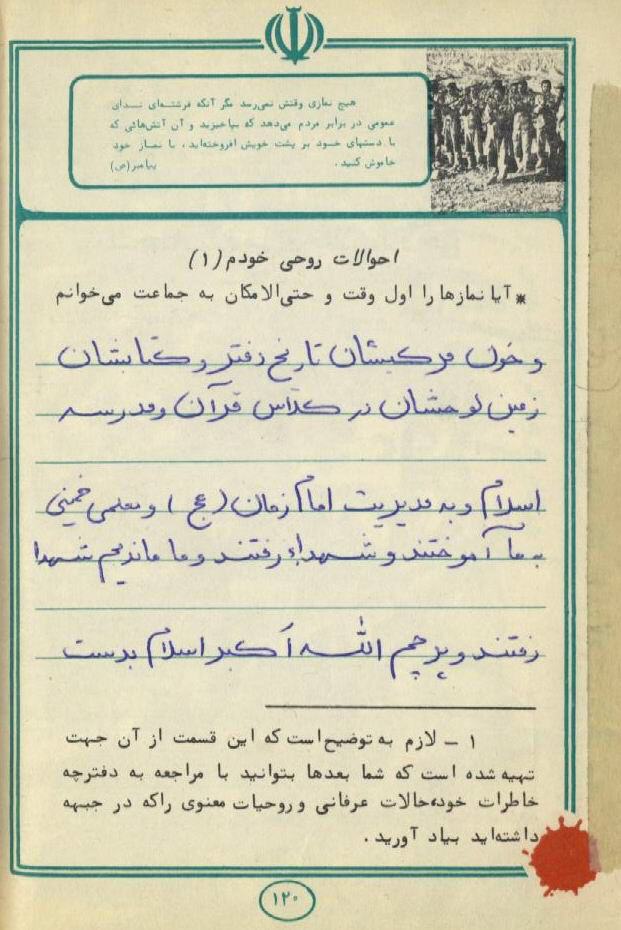 هیچ نمازی وقتش نمی‌رسد مگر آنکه فرشته‌ای ندای
عمومی در برابر مردم می‌دهد که بپاخیزید و آن آتش‌هائی که
با دستهای خود بر پشت خویش افروخته‌اید، با نماز خود
خاموش کنید. پیامبر(ص)
احوالات روحی خودم (۱)
* آیا نمازها را اول وقت و حتی‌الامکان به جماعت می‌خوانم
و خون مرکبشان تاریخ دفتر و کتابشان
زمین لوحشان در کلاس قرآن و مدرسه
اسلام و به مدیریت امام زمان (عج) و معلمی خمینی
به ما آموختند و شهداء رفتند و ما ماندیم شهدا
رفتند و پرچم الله اکبر اسلام بدست
۱ – لازم به توضیح است که این قسمت از آن جهت
تهیه شده است که شما بعدها بتوانید با مراجعه به دفترچه
خاطرات خود، حالات عرفانی و روحیات معنوی را که در جبهه
داشته‌اید بیاد آورید.
۱۲۰